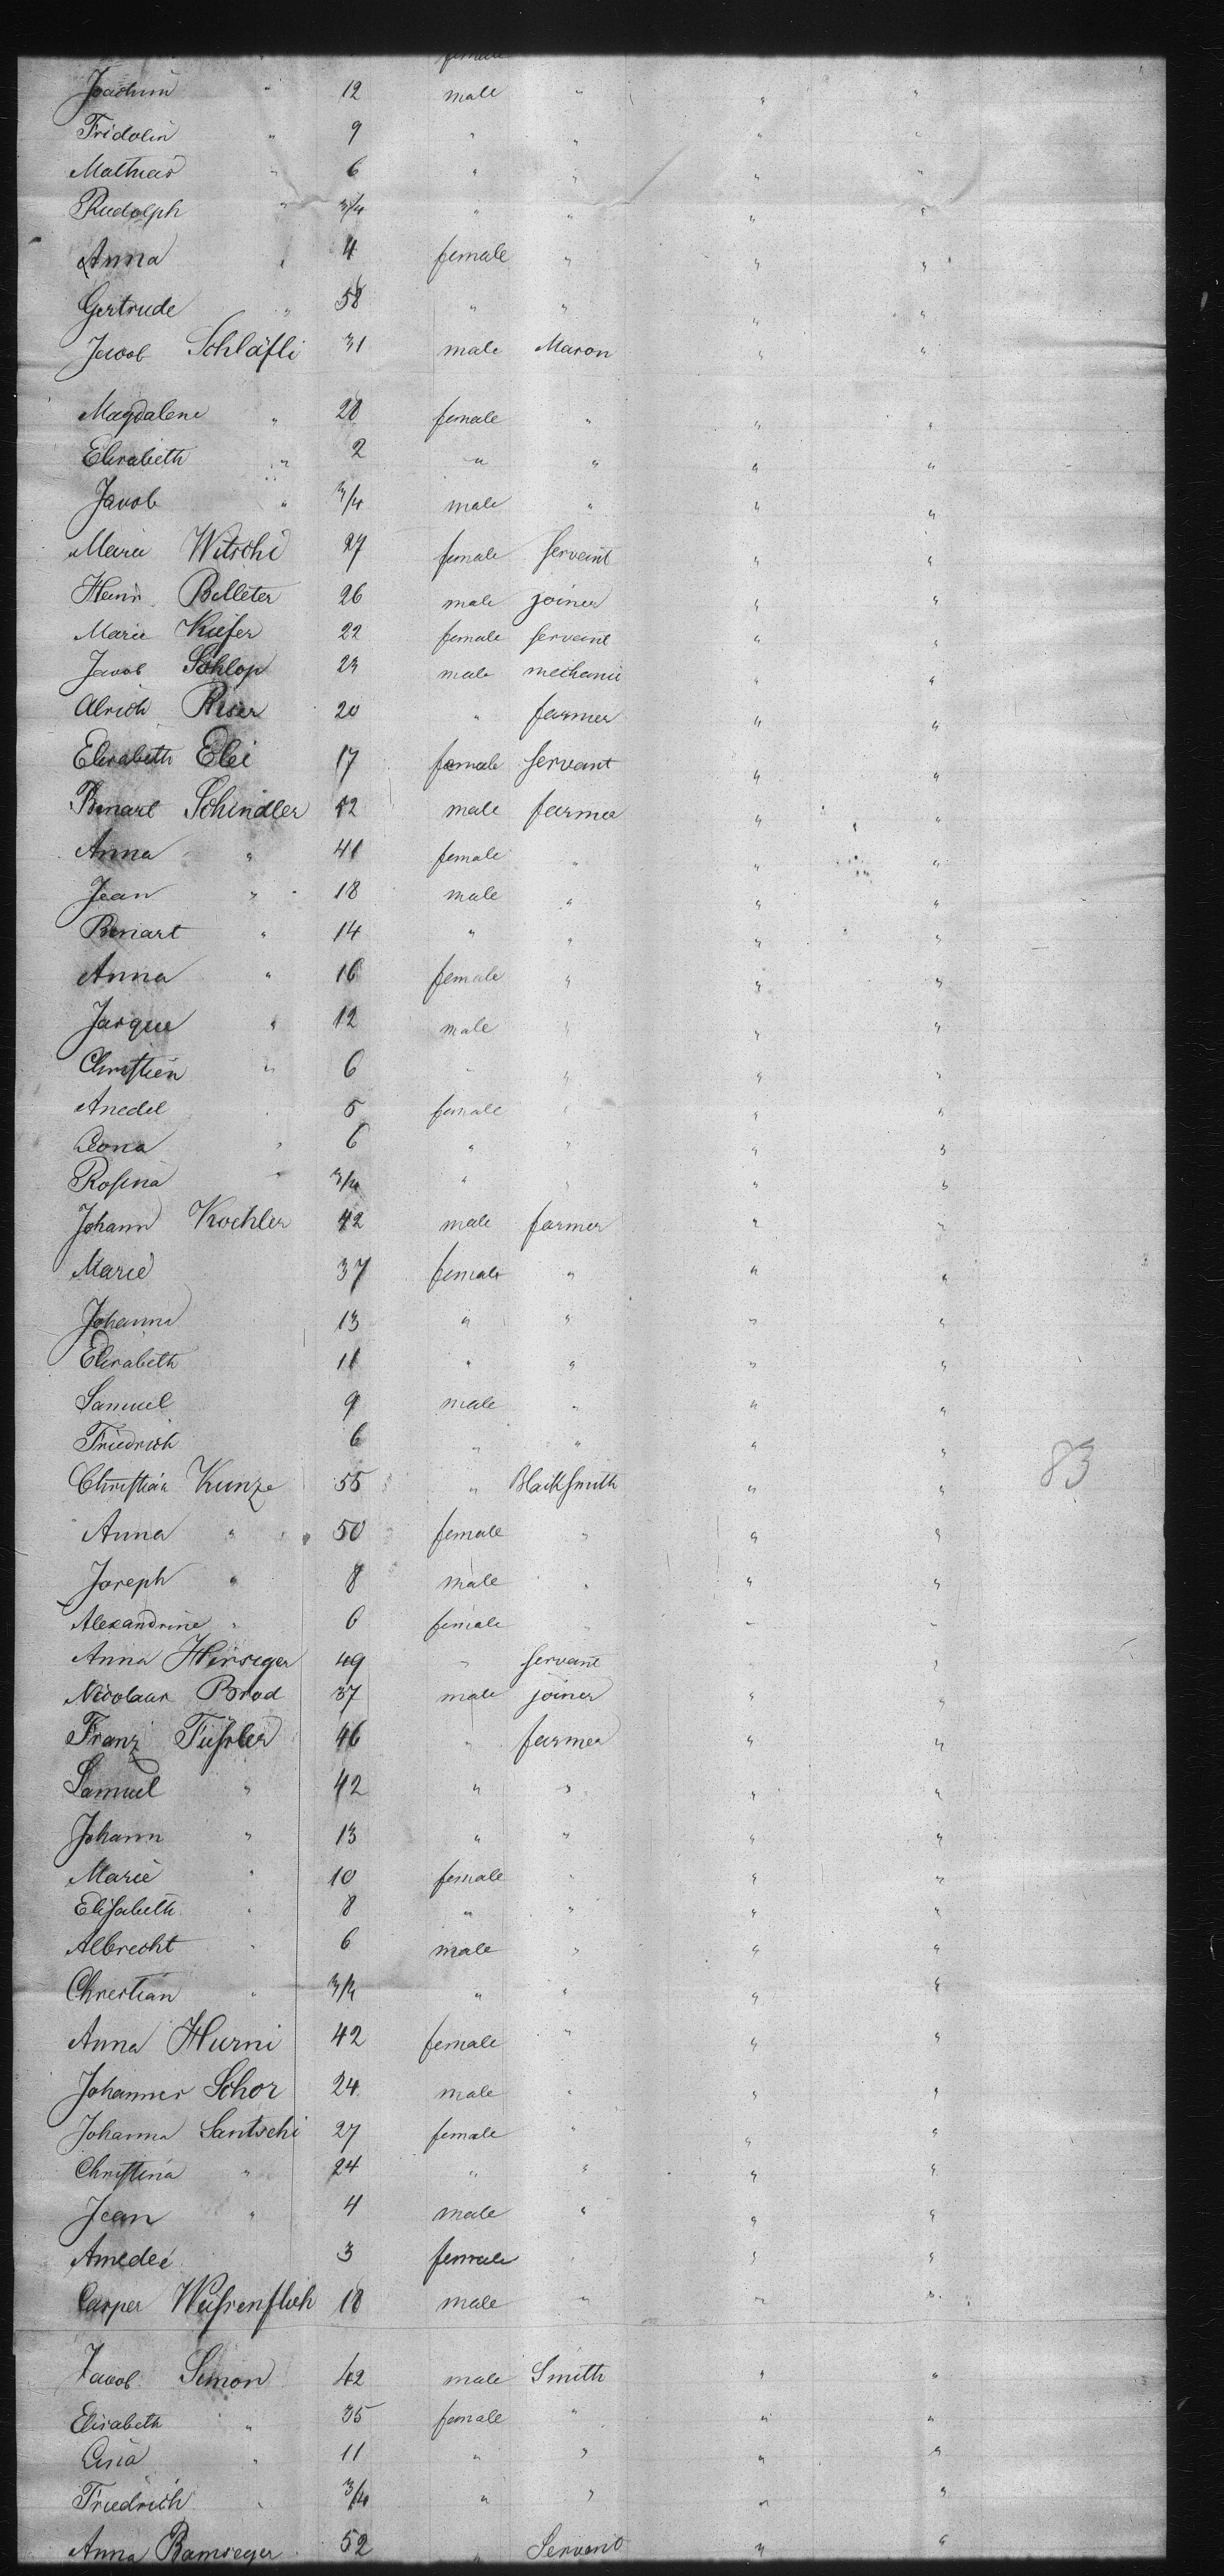 female
Joachim " 12 male " " "
Fridolin " 9 " " " "
Mathias " 6 " " " "
Rudolph " 3/4 " " " "
Anna " 4 female " " "
Gertrude " 58 " " " "
Jacob Schläfli 31 male Mason " "
Magdalene " 28 female " " "
Elisabeth " 2 " " " "
Jacob " 3/4 male " " "
Marie Witschi 27 female servant " "
Heinr. Belleter 26 male joiner " "
Marie Kiefer 22 female servant " "
Jacob Schlop 23 male mechanic " "
Ulrich Riser 20 " farmer " "
Elisabeth Elei 17 female servant " "
Benart Schindler 42 male farmer " "
Anna " 41 female " " "
Jean " 18 male " " "
Benart " 14 " " " "
Anna " 16 female " " "
Jasque " 12 male " " "
Christien " 6 " " " "
Anedel 5 female " " "
Rosina " 3/4 " " " "
6 " " " "
Johann Kochler 42 male farmer " "
Marie 37 female " " "
Johanna 13 " " " "
Elisabeth 11 " " " "
Samuel 9 male " " "
Friedrich 6 " " " "
83
Christian Kunze 55 " Blacksmith " "
Anna " 50 female " " "
Joseph " 8 male " " "
Alexandrine " 6 female " " "
Anna Hirsiger 49 " servant "
Nicolaus Brod 37 male joiner " "
Franz Füssler 46 " farmer " "
Samuel " 42 " " " "
Johann " 13 " " " "
Marie " 10 female " " "
Elisabeth " 8 " " " "
Albrecht " 6 male " " "
Christian " 3/4 " " " "
Anna Hurni 42 female " " "
Johannes Schor 24 male " " "
Johanna Santschi 27 female " " "
Christina " 24 " " " "
Jean " 4 male " " "
Amedee 3 female " " "
Casper 18 male " " "
Jacob Simon 42 male Smith " "
Elisabeth " 35 female " " "
" 11 " " " "
Friedrich " 3/4 " " " "
Anna Bamseger 52 " Servant " "